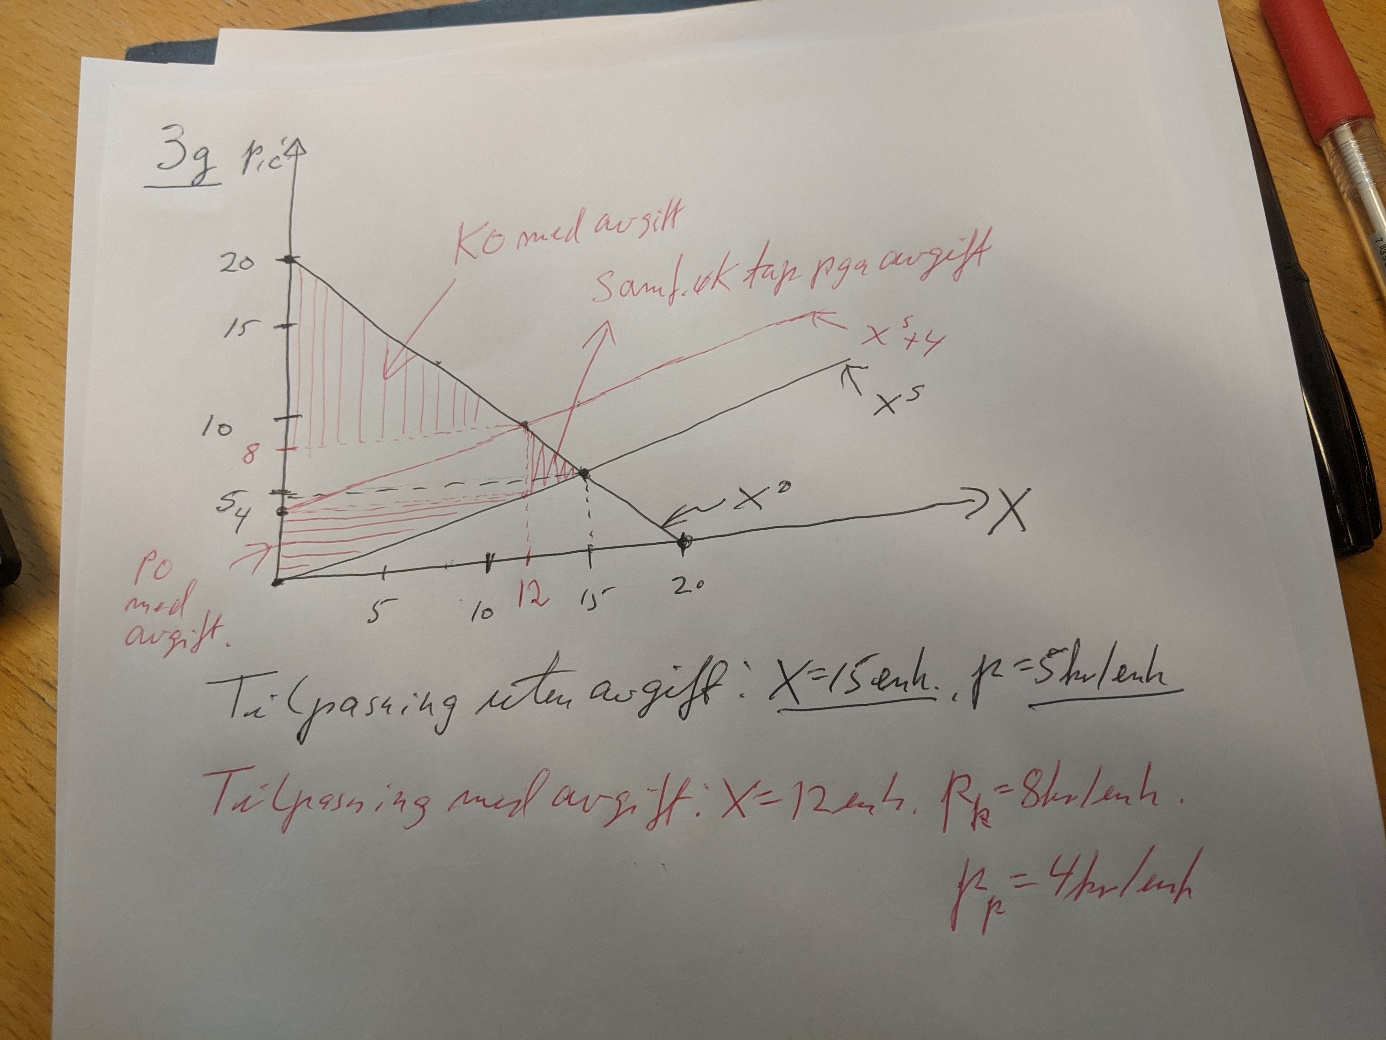 3g p,c
KO med avgift
Samf.øk tap pga avgift
20
15
X^s+4
X^s
10
8
5
4
X^D
X
PO
med
avgift.
5 10 12 15 20
Tilpasning uten avgift: X=15enh., p=5kr/enh
Tilpasning med avgift: X=12enh. P_k=8kr/enh.
P_p=4kr/enh